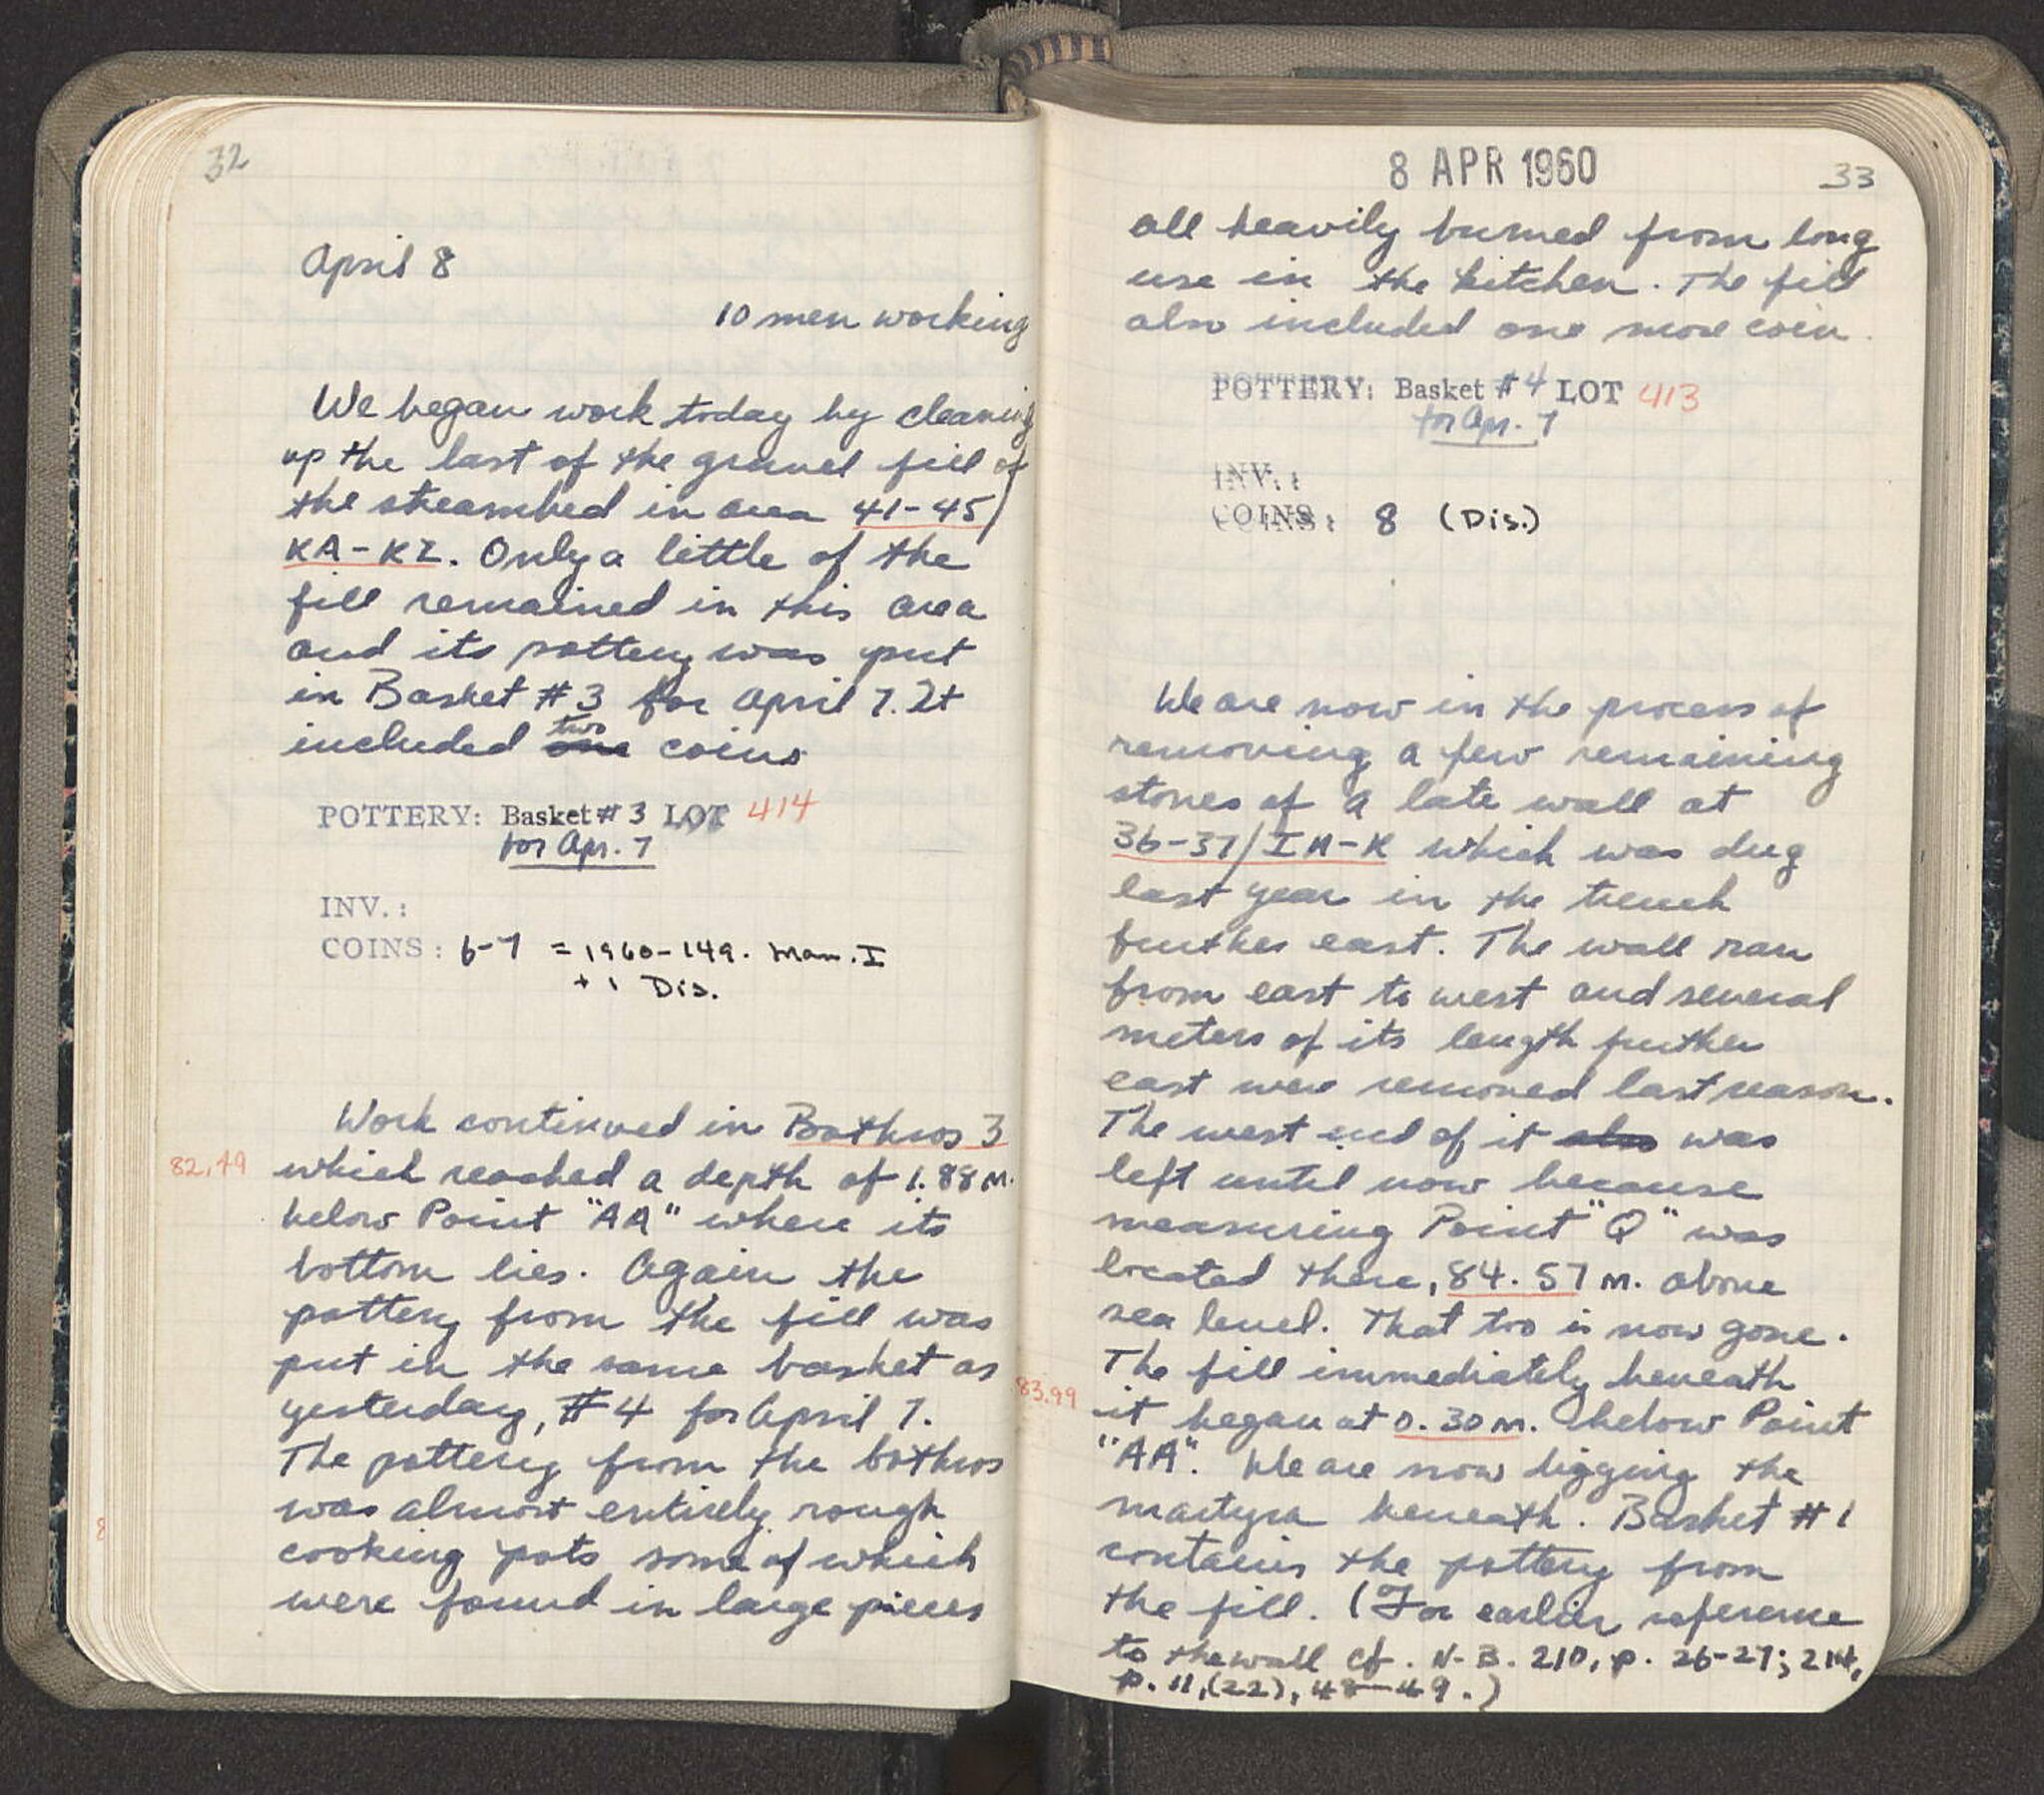 32
April 8
10 men working
We began work today by cleaning
up the last of the gravel fill of
the streambed in area 41-45/
KA-KZ. Only a little of the
fill remained in this area
and its pottery was put
in Basket #3 for April 7. It
included one two coins
POTTERY: Basket #3 LOT 414
for Apr. 7
INV.:
COINS: 6-7 = 1960-149. Man. I
+ 1 Dis.
Work continued in Bothros 3
82,49 which reached a depth of 1.88 m.
below Point "AA" where its
bottom lies. Again the
pottery from the fill was
put in the same basket as
yesterday, #4 for April 7.
The pottery from the bothros
was almost entirely rough
8
cooking pots some of which
were found in large pieces
8 APR 1960
33
all heavily burned from long
use in the kitchen. The fill
also included one more coin.
POTTERY: Basket #4 LOT 413
for Apr. 7
INV.:
COINS: 8 (Dis.)
We are now in the process of
removing a few remaining
stones of a late wall at
36-37/IA-K which was dug
last year in the trench
further east. The wall ran
from east to west and several
meters of its length further
east were removed last season.
The west end of it also was
left until now because
measuring Point "Q" was
located there, 84.57 m. above
sea level. That too is now gone.
The fill immediately beneath
83.99 it began at 0.30 m. below Point
"AA". We are now digging the
martyra beneath. Basket #1
contains the pottery from
the fill. (For earlier reference
to the wall cf. N.B. 210, p. 26-27;
p. 11, (22), 48-49.)